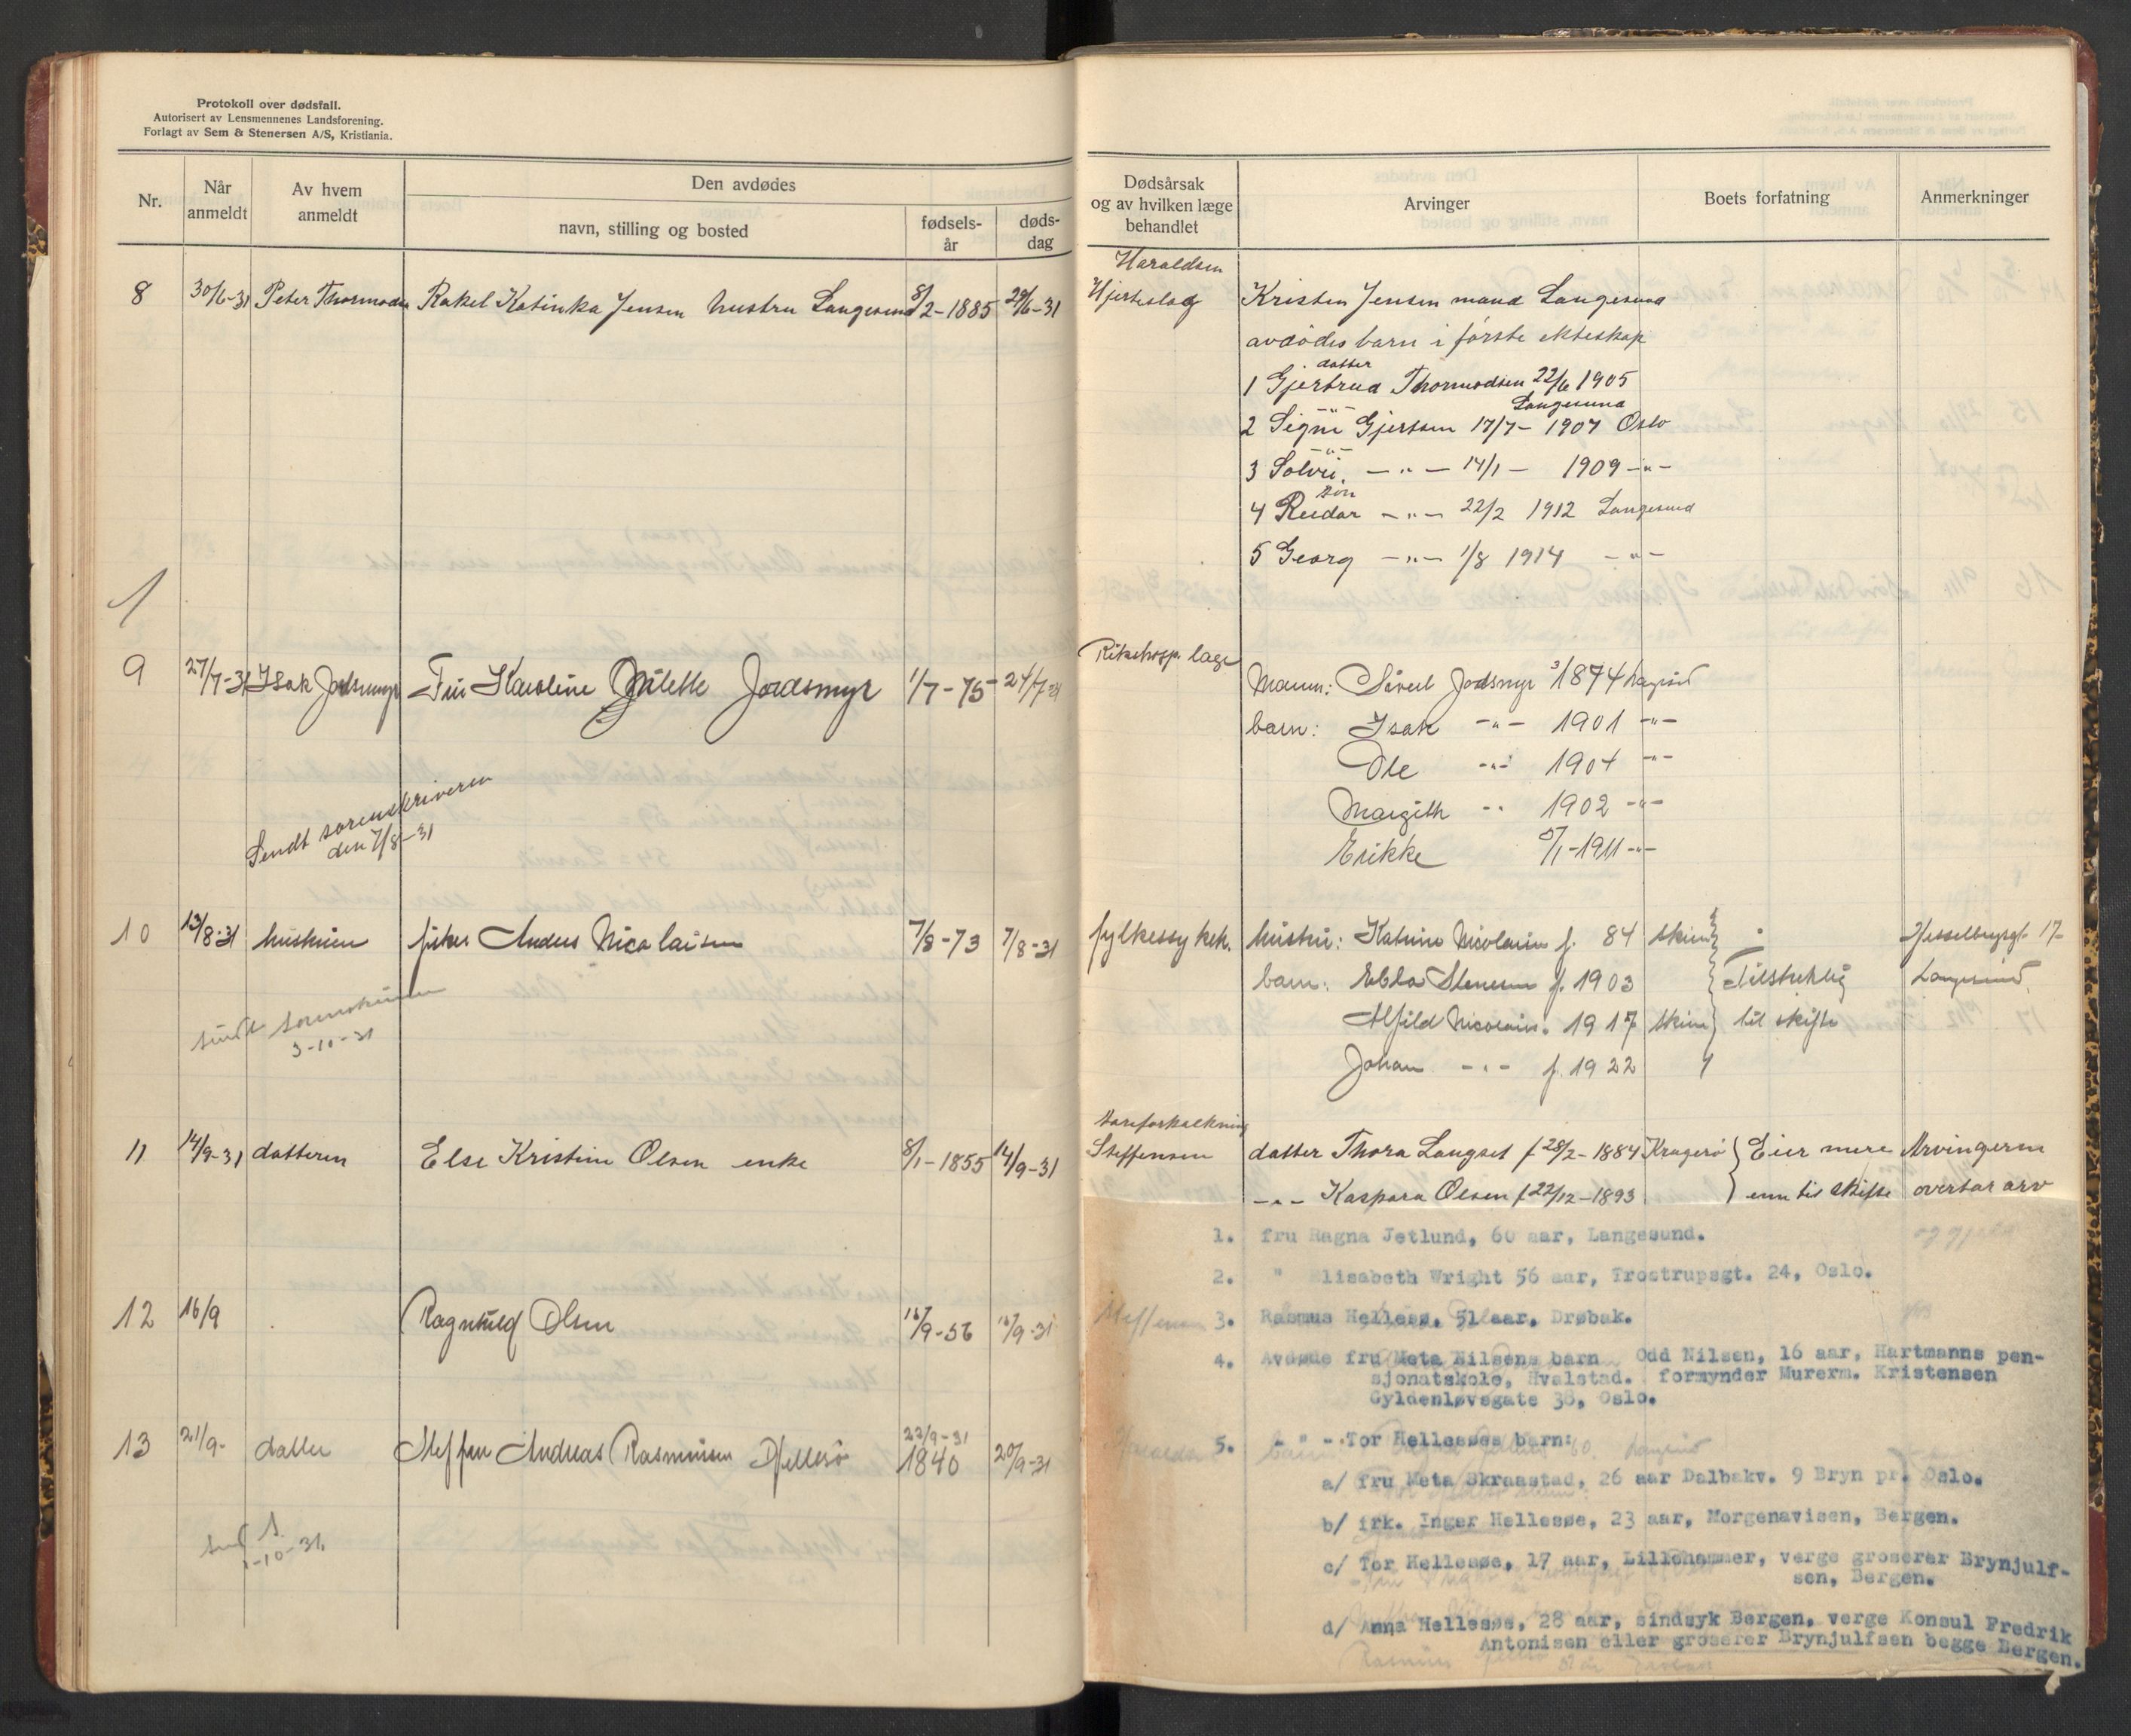 Protokoll over dødsfall.
Autorisert av Lensmennenes Landsforening.
Forlagt av Sem & Stenersen A/S, Kristiania.
Nr.
Når anmeldt
Av hvem anmeldt
Den avdødes
navn, stilling og bosted
fødsels-år
døds-dag
8 30/6-31 Peter Thormodsen Rakel Katinka Jensen hustru Langesund 8/2-1885 29/6-31
9 27/7-31 Isak Jordsmyr Fru Karoline Jordsmyr 1/7-75 24/7
Sendt sorenskriveren
den 7/8-31
10 13/8-31 hustruen fisker Anders Nicolaisen 7/8-73 7/8-31
sendt sorenskriveren
3-10-31
11 14/9-31 datteren Else Kristine Olsen enke 8/1-1855 14/9-31
12 16/9 Ragnhild Olsen 16/9-56 16/9-31
22/9-31
13 21/9- datter Steffen Andreas Rasmussen Hellesö 1840 20/9-31
-10-31
Dødsårsak
og av hvilken læge
behandlet
Arvinger
Boets forfatning
Anmerkninger
Haraldsen
Hjerteslag Kristen Jensen mand Langesund
avdødes barn i første ekteskap
datter
1 Gjertrud Thormodsen 22/6 1905
Langesund
-"-
2 Signe Gjertsen 17/7- 1907 Oslo
-"-
3 Solvei -"- 14/1- 1909 -"-
søn
4 Reidar -"- 22/2 1912 Langesund
5 Georg -"- 1/8 1914 -"-
Rikshosp. læge
Mann: Sivert Jordsmyr 1874 Langesund
barn: Isak -"- 1901 -"-
Ole -"- 1904 -"-
Margith -"- 1902 -"-
Erikke 5/1-1911 -"-
fylkessykeh. hustru: Katrine Nicolaisen f. 84 Hesselbergsgt. 17
barn: Ebba Stenersen f. 1903 Tilstrekkelig Langesund
Alfild Nicolaisen 1917 til skifte
Johan -"- f. 1922
Åreforkalkning
Steffensen datter Thora Langset f 28/2-1884 Kragerø Eier mere Arvingerne
-"- Kaspara Olsen f 22/12-1893 enn til skifte overtar arv
og gjeld
1. fru Ragna Jetlund, 60 aar, Langesund.
2. " Elisabeth Wright 56 aar, Trostrupsgt. 24, Oslo.
Steffensen
3. Rasmus Hellesø, 51 aar, Drøbak.
4. Avdøde fru Meta Nilsens barn Odd Nilsen, 16 aar, Hartmanns pen-
sjonatskole, Hvalstad. formynder Murerm. Kristensen
Gyldenløvsgate 38, Oslo.
5. - " - Tor Hellesøes barn:
a/ fru Meta Skraastad, 26 aar Dalbakv. 9 Bryn pr. Oslo.
b/ frk. Inger Hellesøe, 23 aar, Morgenavisen, Bergen.
c/ Tor Hellesøe, 17 aar, Lillehammer, verge groserer Brynjulf-
sen, Bergen.
d/ Anna Hellesøe, 28 aar, sindsyk Bergen, verge Konsul Fredrik
Antonisen eller groserer Brynjulfsen begge Bergen.